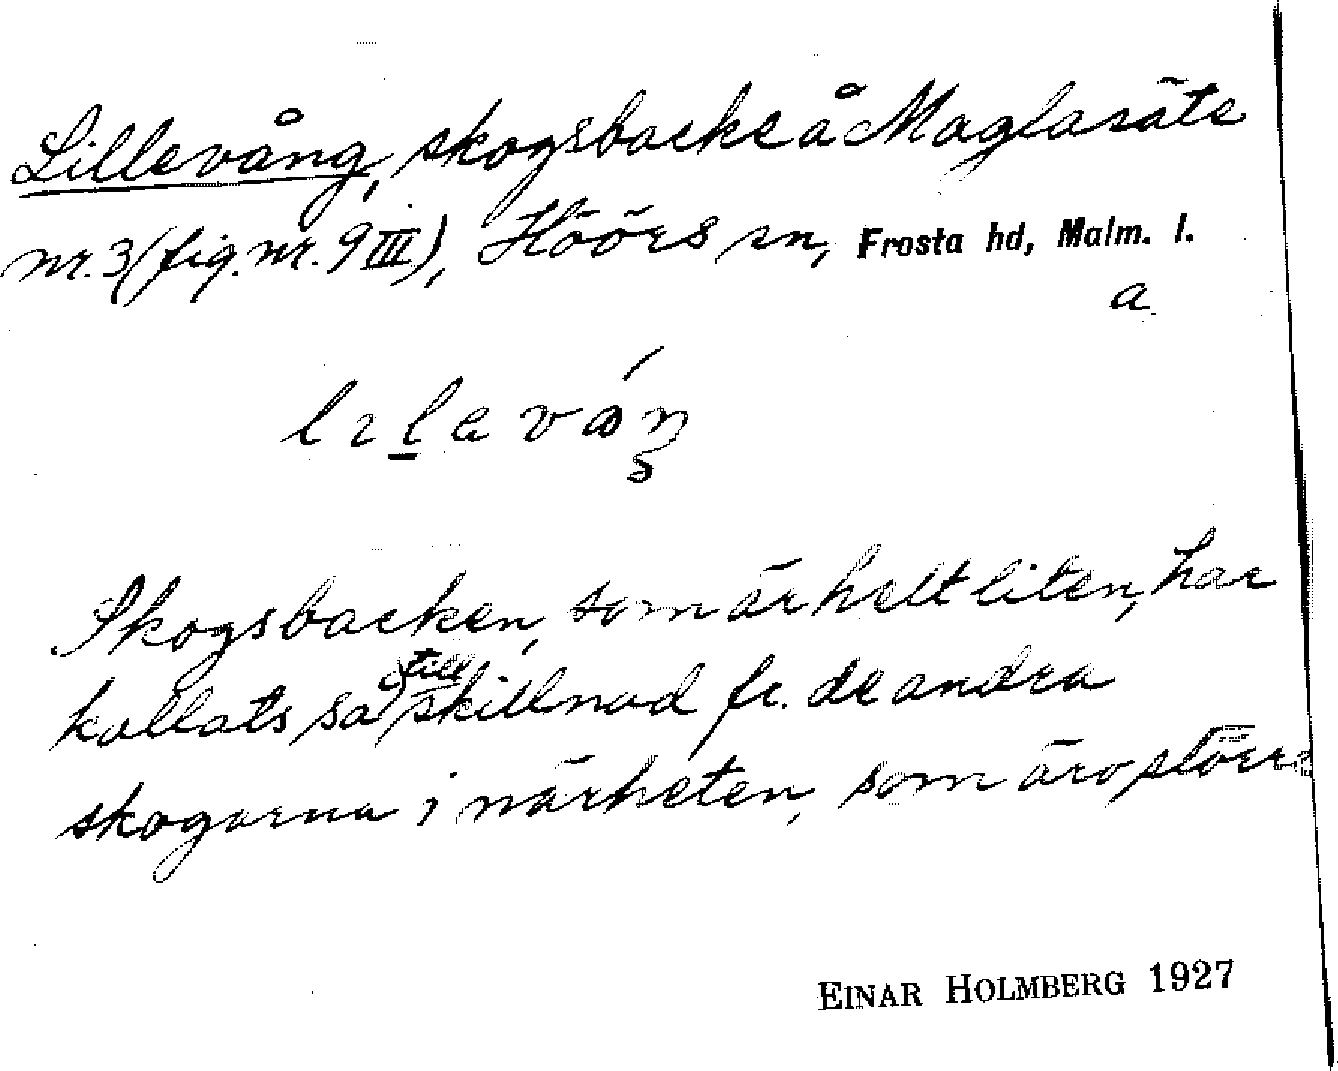 Lillevång, skogsbacke å Maglasäte
nr. 3 (fig. nr. 9 III), Höörs sn, Frosta hd, Malm. l.
a
Skogsbacken, som är helt liten, har
kallats så till skillnad fr. de andra
skogarna i närheten, som äro större
EINAR HOLMBERG 1927